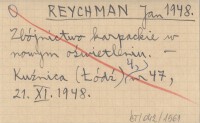 REYCHMAN Jan 1948.
Zbójnictwo karpackie w
nowym oświetleniu. –
Kuźnica (Łódź), nr 47,
21. XI. 1948.